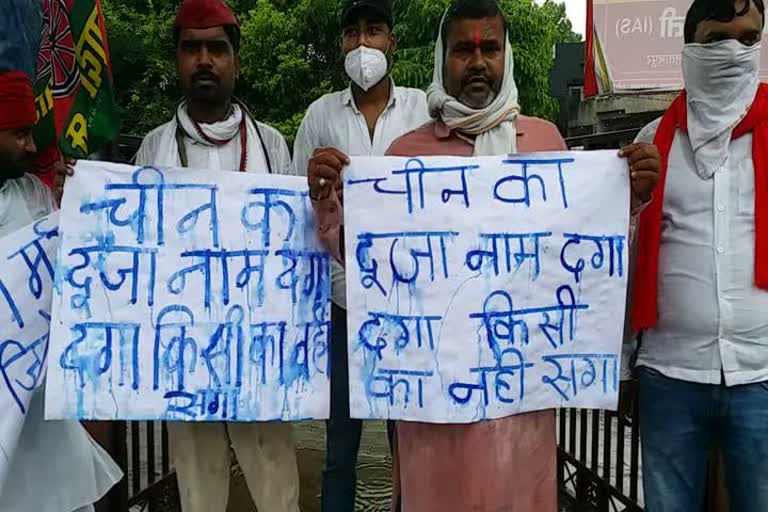 चीन का
दूजा नाम दगा
दगा किसी का नहीं
सगा
चीन का
दूजा नाम दगा
दगा किसी
का नहीं सगा
(IAS)